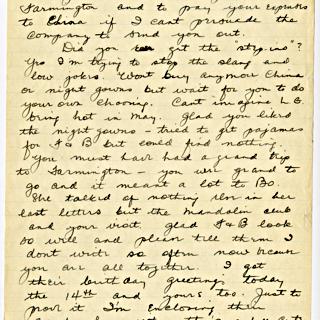 Farmington and to pay your expenses
to China if I cant persuade the
company to send you out.
Did you ever get the "step ins"?
Yes I'm trying to stop the slang and
low jokes. Wont buy anymore China
or night gowns but wait for you to do
your own choosing. Cant imagine L.B.
being hot in May. Glad you liked
the night gowns - tried to get pajamas
for & B but could find nothing.
You must have had a grand trip
to Farmington - you were grand to
go and it meant a lot to Bo.
She talked of nothing else in her
last letters but the mandolin club
and your visit glad & B look
so well and please tell them I
dont write so often now because
you are all together. I got
their birthday greetings today
the 14th and yours too. Just to
prove it I'm enclosing their